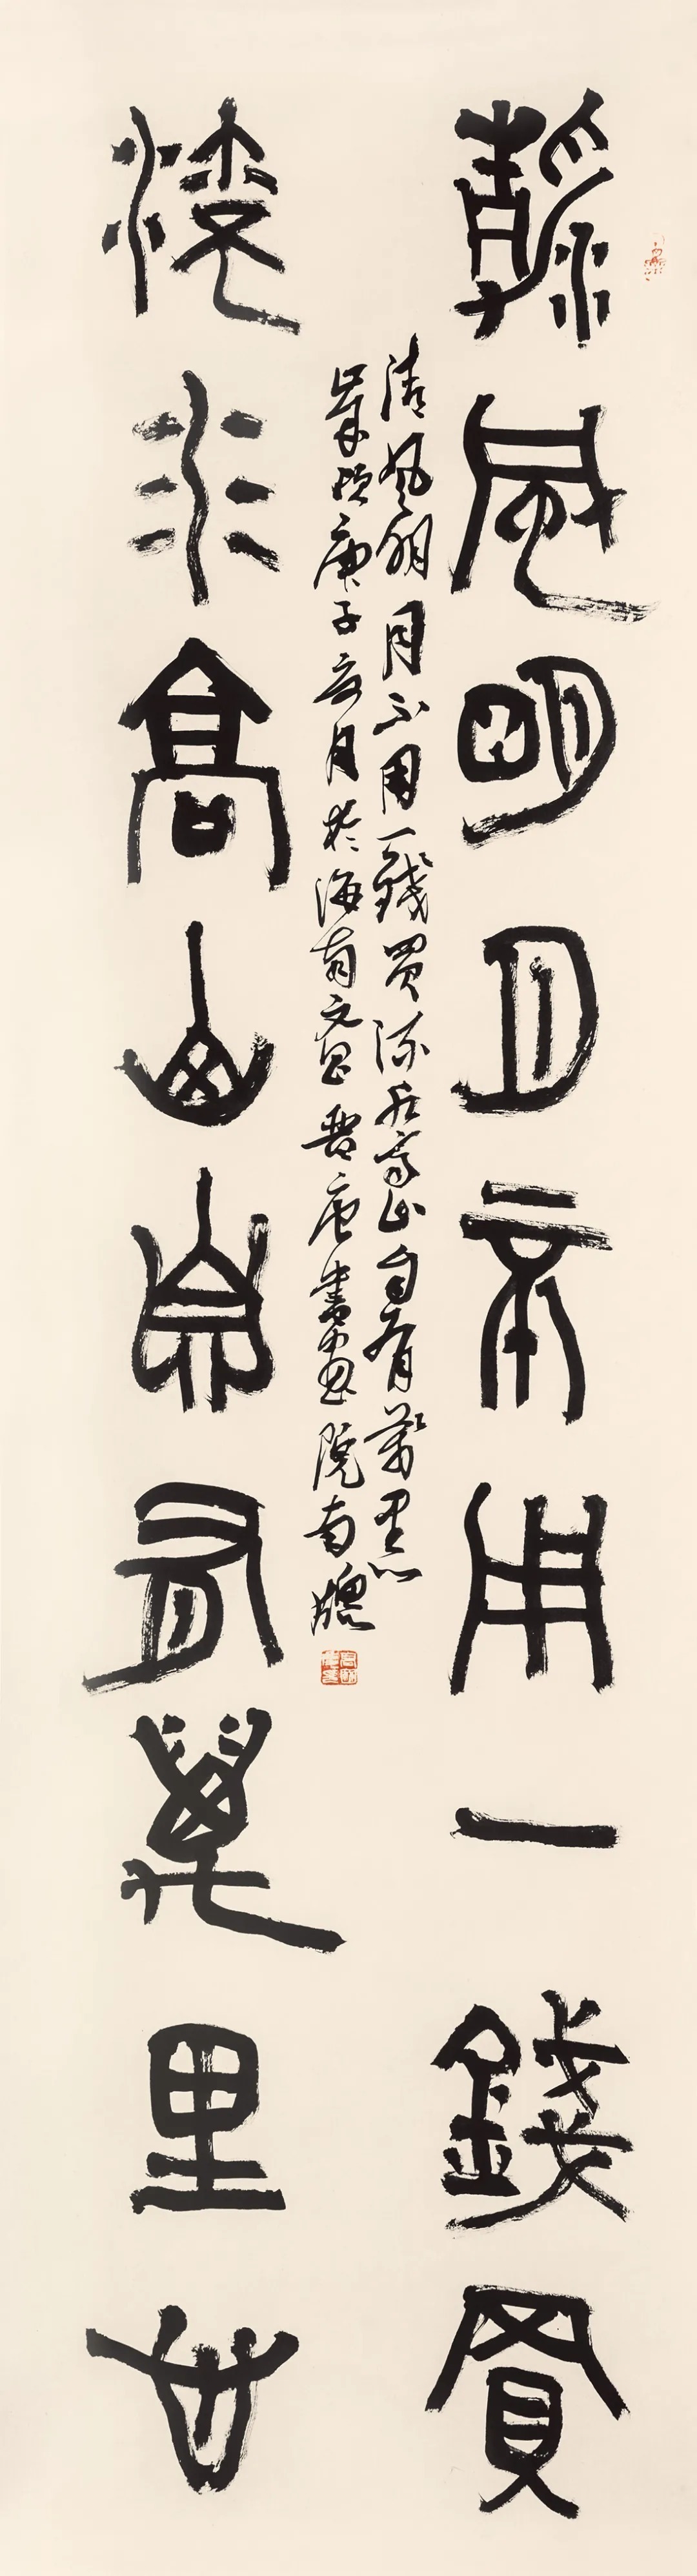 清風明月不用一錢買
流水高山自有萬里心
清風明月不用一錢買流水高山自有萬里心
歲次庚子亥月於海南文昌晉唐書畫院南牕